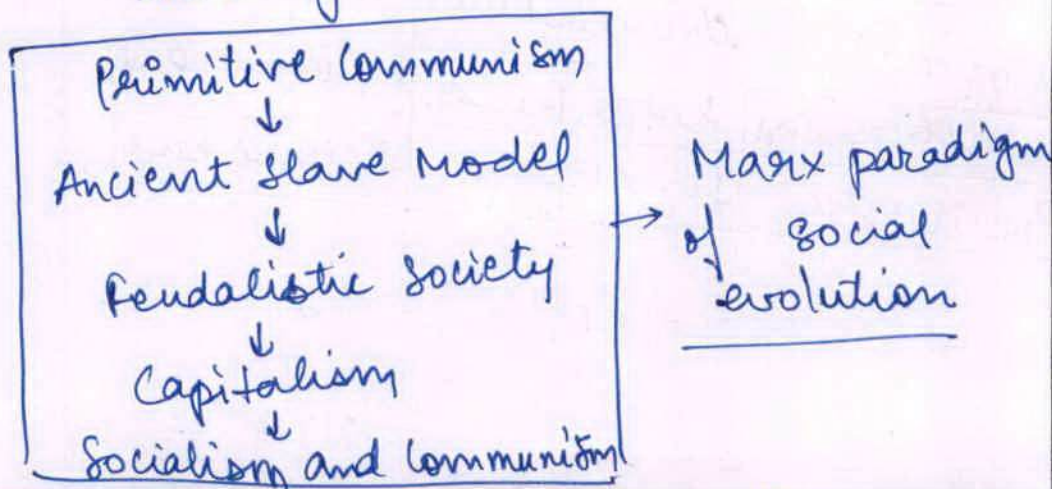 Primitive Communism
↓
Ancient Slave Model
↓
Feudalistic Society
↓
Capitalism
↓
Socialism and Communism
→ Marx paradigm
of social
evolution